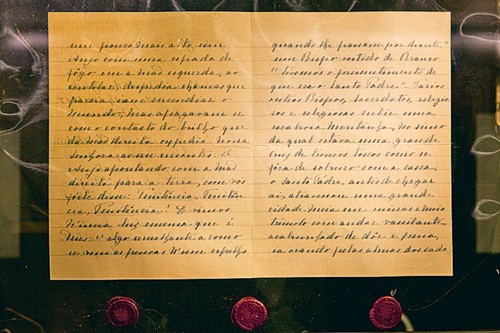 um pouco mais alto, um
Anjo com uma espada de
fôgo em a mão esquerda; ao
centilar, despedia chamas que
parecia iam encendiar o
mundo; mas apagavam-se
com o contacto do brilho que
da mão direita expedia Nossa
Senhora ao seu encontro: O
Anjo apontando com a mão
direita para a terra, com vós
forte disse: Penitência, Penitên-
cia, Penitência! E vimos
n'uma luz emensa que é
Deus: "algo semelhante a como
se vêem as pessoas n'um espelho
quando lhe passam por diante"
um Bispo vestido de Branco
"tivemos o pressentimento de
que era o Santo Padre". Varios
outros Bispos, Sacerdotes, religio-
sos e religiosas subir uma
escabrosa montanha, no cimo
da qual estava uma grande
cruz de troncos toscos como se
fôra de sobreiro com a casca;
o Santo Padre, antes de chegar
aí, atravessou uma grande
cidade meia em ruinas e meio
tremulo com andar vacilante,
acabrunhado de dôr e pena,
ia orando pelas almas dos cada